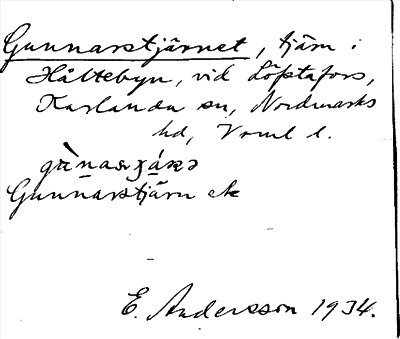 Gunnarstjärnet, tjärn i
Håltebyn, vid Löftafors,
Karlanda sn, Nordmarks
hd, Vrml l.
Gunnarstjärn ek
E. Andersson 1934.